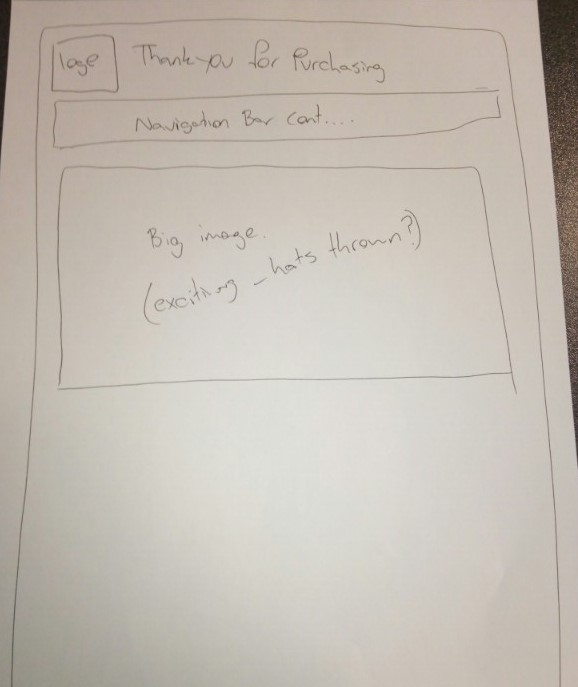 loge
Thank-you for Purchasing
Navigation Bar Cont....
Big image.
(exciting - hats thrown?)